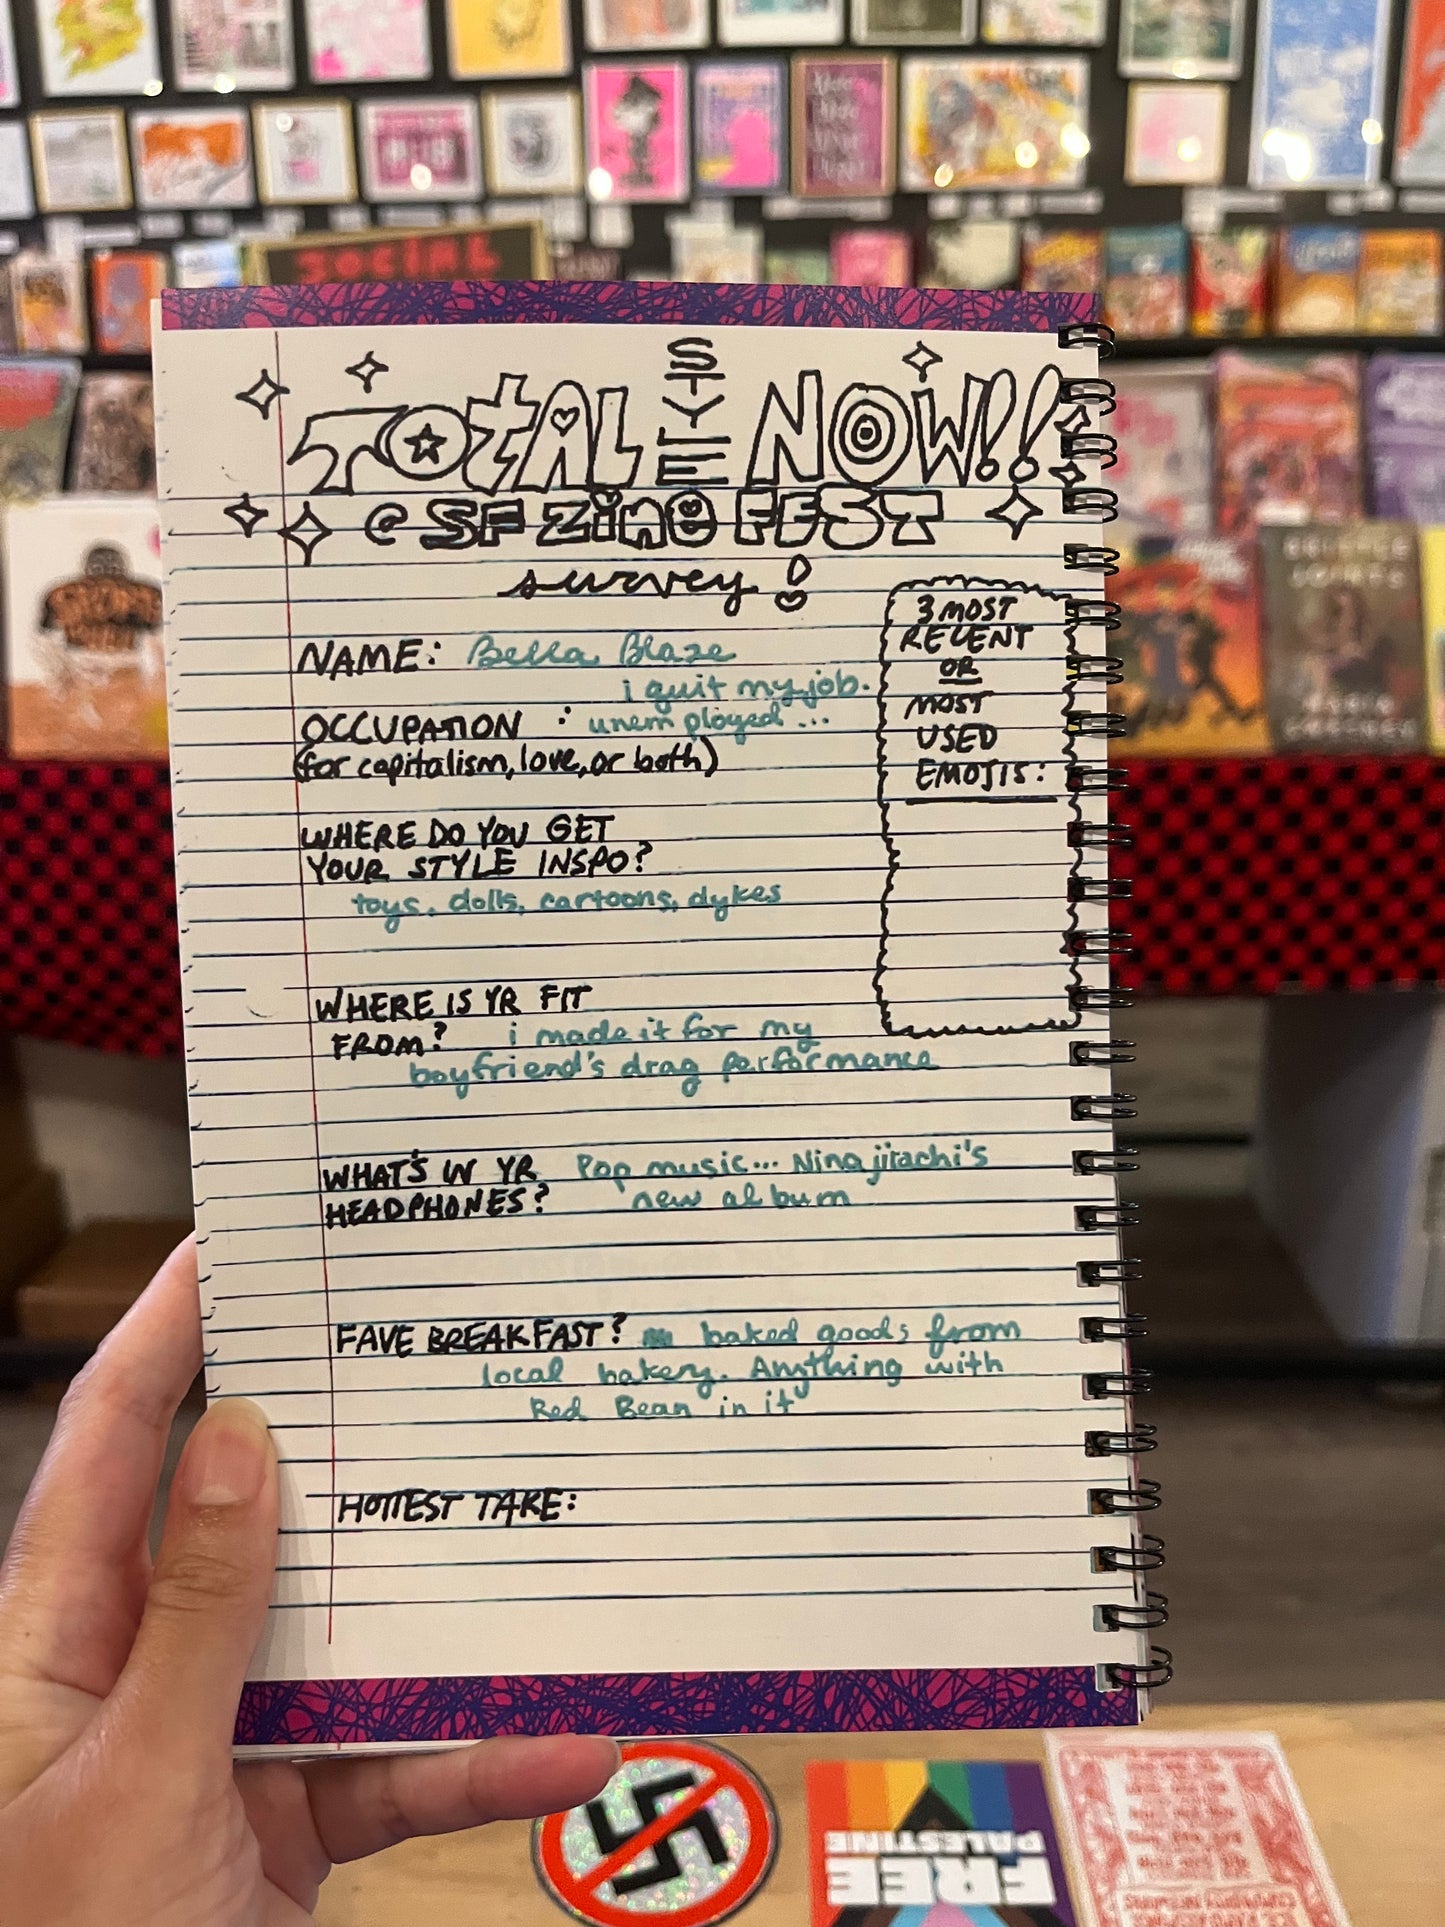 SOCIAL
TOTAL STYLE NOW!!
@ SF ZINE FEST
survey!
NAME: Bella Blaze
OCCUPATION : i quit my job.
unemployed...
(for capitalism, love, or both)
3 MOST
RECENT
OR
MOST
USED
EMOJIS:
WHERE DO YOU GET
YOUR STYLE INSPO?
toys, dolls, cartoons, dykes
WHERE IS YR FIT
FROM? i made it for my
boyfriend's drag performance
WHAT'S IN YR Pop music... Ninajirachi's
HEADPHONES? new album
FAVE BREAKFAST? baked goods from
local bakery. Anything with
Red Bean in it
HOTTEST TAKE:
FREE
PALESTINE